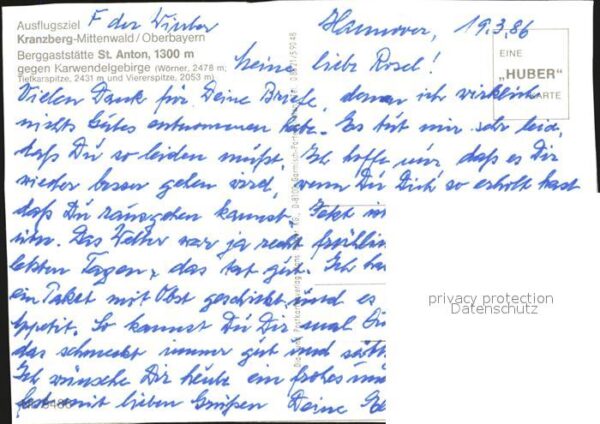 Ausflugsziel F der Winter
Hannover, 19.3.86
Kranzberg-Mittenwald/Oberbayern
Berggaststätte St. Anton, 1300 m
gegen Karwendelgebirge (Wörner, 2478 m;
Tiefkarspitze, 2431 m und Viererspitze, 2053 m).
EINE
„HUBER"
KARTE
Meine liebe Rosel!
Vielen Dank für Deine Briefe, denen ich wirklich
nichts Gutes entnommen habe. Es tut mir sehr leid,
daß Du so leiden mußt. Ich hoffe nur, daß es Dir
wieder besser gehen wird, wenn Du Dich so erholt hast
daß Du rausgehen kannst. Jetzt
Das Wetter war ja recht frühlin
letzten Tagen, das tat gut. Ich ha
ein Paket mit Obst geschickt und es
Appetit. So kannst Du Dir mal
das schmeckt immer gut und
Ich wünsche Dir heute ein frohes
fest mit lieben Grüßen Deine
privacy protection
Datenschutz